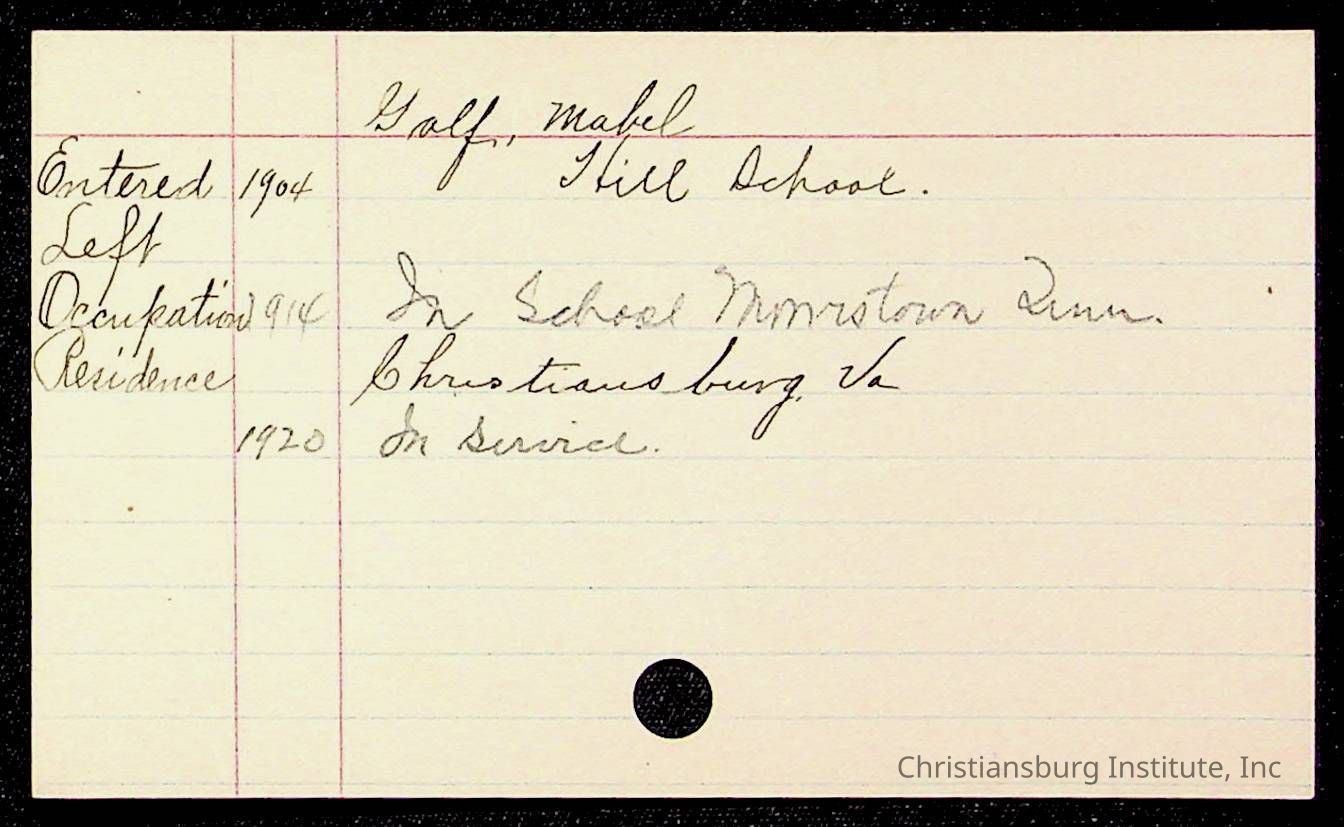 Golf, Mabel
Entered 1904 Hill School.
Left
Occupation 1914 In School Morristown Tenn.
Residence Christiansburg, Va
1920 In Service.
Christiansburg Institute, Inc